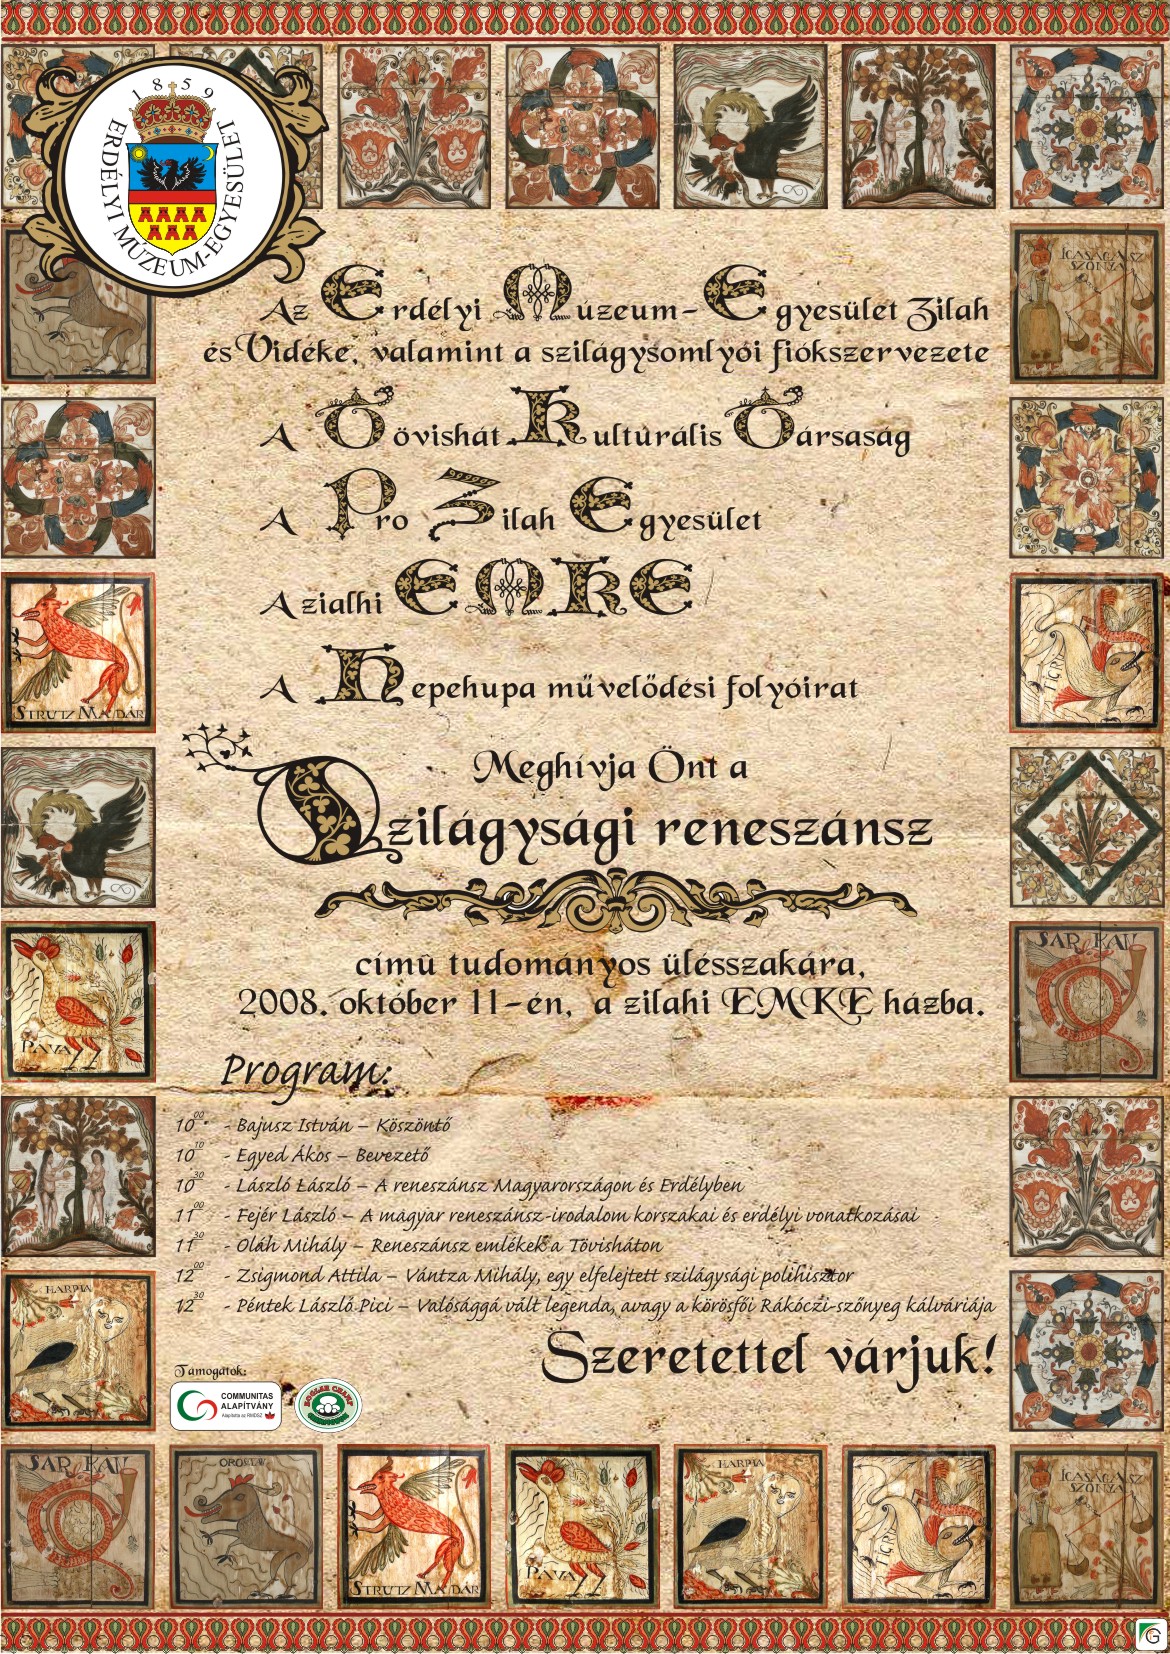 1859
ERDÉLYI MÚZEUM-EGYESÜLET
Az Erdélyi Múzeum-Egyesület Zilah
és Vidéke, valamint a szilágysomlyói fiókszervezete
A Tövishát Kulturális Társaság
A Pro Zilah Egyesület
A zialhi EMKE
A Hepehupa művelődési folyóirat
Meghívja Önt a
Szilágysági reneszánsz
címû tudományos ülésszakára,
2008. október 11-én, a zilahi EMKE házba.
Program:
10 00 - Bajusz István – Köszöntő
10 10 - Egyed Ákos – Bevezető
10 30 - László László – A reneszánsz Magyarországon és Erdélyben
11 00 - Fejér László – A magyar reneszánsz-irodalom korszakai és erdélyi vonatkozásai
11 30 - Oláh Mihály – Reneszánsz emlékek a Tövisháton
12 00 - Zsigmond Attila – Vántza Mihály, egy elfelejtett szilágysági polihisztor
12 30 - Péntek László Pici – Valósággá vált legenda, avagy a körösfői Rákóczi-szőnyeg kálváriája
Szeretettel várjuk!
Támogatók:
COMMUNITAS
ALAPÍTVÁNY
Alapította az RMDSZ
IGASÁGNAK
SZÓNYA
STRUTZ MADÁR
TIGRIS
SARKAN
PÁVA
HARPIA
SARKAN
STRUTZ MADÁR
PÁVA
HARPIA
TIGRIS
G